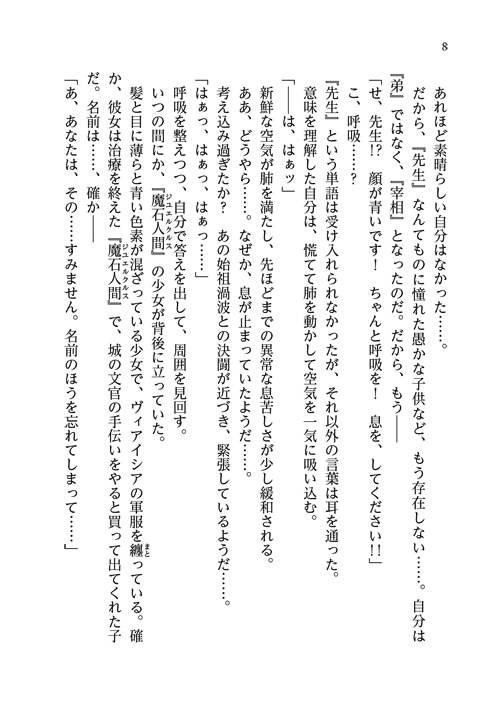 8
あれほど素晴らしい自分はなかった……。
だから、『先生』なんてものに憧れた愚かな子供など、もう存在しない……。自分は
『弟』ではなく、『宰相』となったのだ。だから、もう――
「せ、先生!? 顔が青いです! ちゃんと呼吸を! 息を、してください!!」
こ、呼吸……?
『先生』という単語は受け入れられなかったが、それ以外の言葉は耳を通った。
意味を理解した自分は、慌てて肺を動かして空気を一気に吸い込む。
「――は、はぁッ」
新鮮な空気が肺を満たし、先ほどまでの異常な息苦しさが少し緩和される。
ああ、どうやら……。なぜか、息が止まっていたようだ……。
考え込み過ぎたか? あの始祖渦波との決闘が近づき、緊張しているようだ……。
「はぁっ、はぁっ、はぁっ……」
呼吸を整えつつ、自分で答えを出して、周囲を見回す。
いつの間にか、『魔石人間』の少女が背後に立っていた。
ジュエルクルス
髪と目に薄らと青い色素が混ざっている少女で、ヴィアイシアの軍服を纏っている。確
まと
か、彼女は治療を終えた『魔石人間』で、城の文官の手伝いをやると買って出てくれた子
ジュエルクルス
だ。名前は……、確か――
「あ、あなたは、その……すみません。名前のほうを忘れてしまって……」